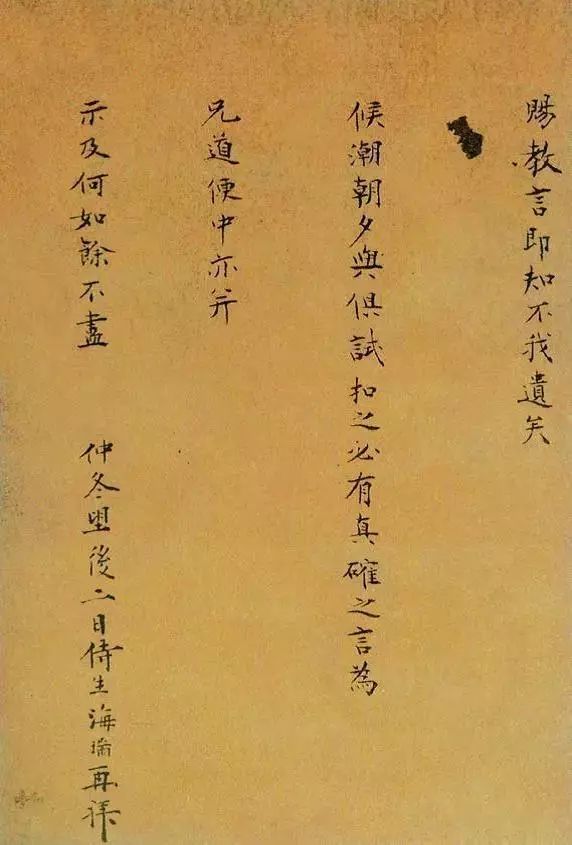 賜教言即知不我遺矣
候潮朝夕與俱試扣之必有真確之言為
兄道便中亦并
示及何如餘不盡 仲冬朢後二日侍生海瑞再拜